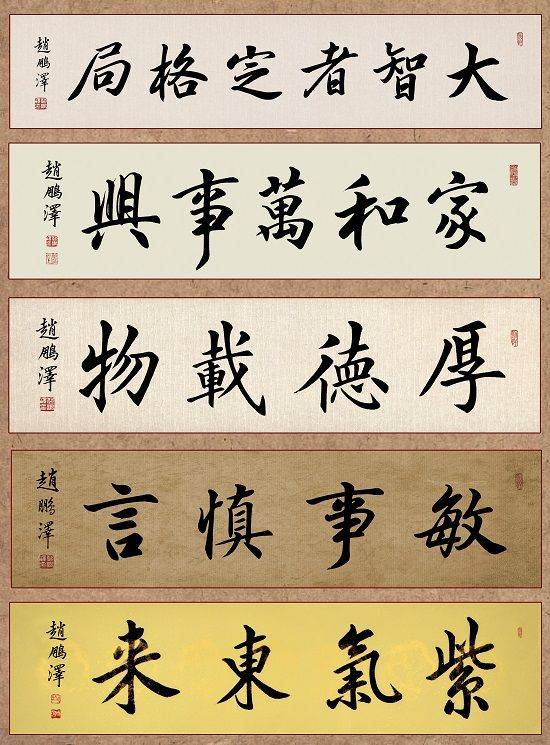 大智者定格局
趙鵬澤
家和萬事興
趙鵬澤
厚德載物
趙鵬澤
敏事慎言
趙鵬澤
紫氣東来
趙鵬澤